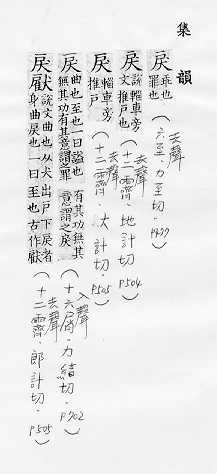 集韻
戾 乖也
罪也
(去聲 六至．力至切．P477)
戾 說輜車旁
文推戶也
(去聲 十二霽．地計切．P504)
戾 輜車旁
推戶
(去聲 十二霽．大計切．P505)
戾 曲也至也一曰謚也 有其功無其
無其功有其意謂之罪 意謂之戾
(入聲 十六屑．力結切．P702)
戾 說文曲也从犬出戶下戾者
身曲戾也一曰至也古作
(去聲 十二霽．郎計切．P505)